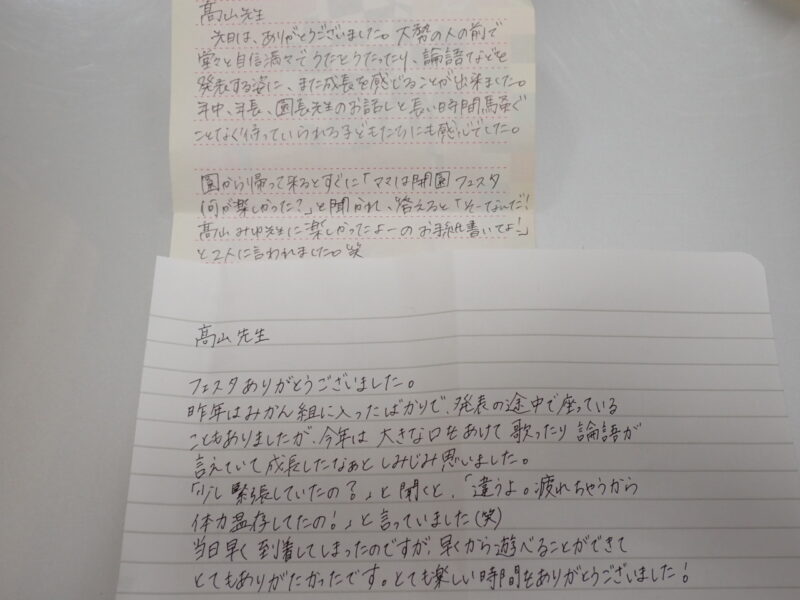 髙山先生
先日は、ありがとうございました。大勢の人の前で
堂々と自信満々でうたをうたったり、論語などを
発表する姿に、また成長を感じることが出来ました。
年中、年長、園長先生のお話しと長い時間騒ぐ
ことなく待っていられる子どもたちにも感心でした。
園から帰って来るとすぐに「ママは開園フェスタ
何が楽しかった?」と聞かれ、答えると「そーなんだ!
髙山みゆ先生に楽しかったよーのお手紙書いてよ!」
と2人に言われました。笑
髙山先生
フェスタありがとうございました。
昨年はみかん組に入ったばかりで、発表の途中で座っている
こともありましたが、今年は大きな口をあけて歌ったり論語が
言えていて成長したなぁとしみじみ思いました。
「少し緊張していたの?」と聞くと、「違うよ。疲れちゃうから
体力温存してたの!」と言っていました(笑)
当日早く到着してしまったのですが、早くから遊べることができて
とてもありがたかったです。とても楽しい時間をありがとうございました!